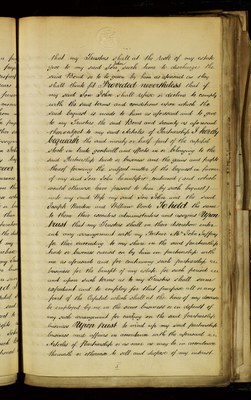 that my Trustees shall at the risk of my estate
give to my said Son such time to discharge the
said Bond so to be given by him as aforesaid as they
shall think fit Provided nevertheless that if
my said Son John shall refuse or neglect to comply
with the said terms and conditions upon which the
said bequest is made to him as aforesaid and to give
to my Trustees the said Bond and security as aforesaid
then subject to my said Articles of Partnership I hereby
bequeath the said moiety or half part of the capital
stock in trade goodwill and effects as in belonging to the
said Partnership trade or business and the gains and profits
thereof forming the subject matter of the bequest in favour
of my said Son John hereinbefore contained (and which
would otherwise have passed to him by such bequest)
unto my said Wife my said Son John and the said
Joseph and William To hold the same
to them their executors administrators and assigns Upon
trust that my Trustees shall in their discretion enter
into any arrangement with my Partner Mr John
for their succeeding to my share in the said partnership
trade or business carried on by him in partnership with
me as aforesaid and for continuing such partnership or
business for the benefit of my estate for such period and
and upon such terms as to my Trustees shall seem
expedient and to employ for that purpose all or any
part of the Capital which shall at the time of my decease
be employed by me in the same business or in default of
any such arrangement for carrying on the said partnership
business Upon trust to wind up my said partnership
business and affairs in accordance with the aforesaid
Articles of Partnership or as near as may be in accordance
therewith or otherwise to sell and dispose of my interest